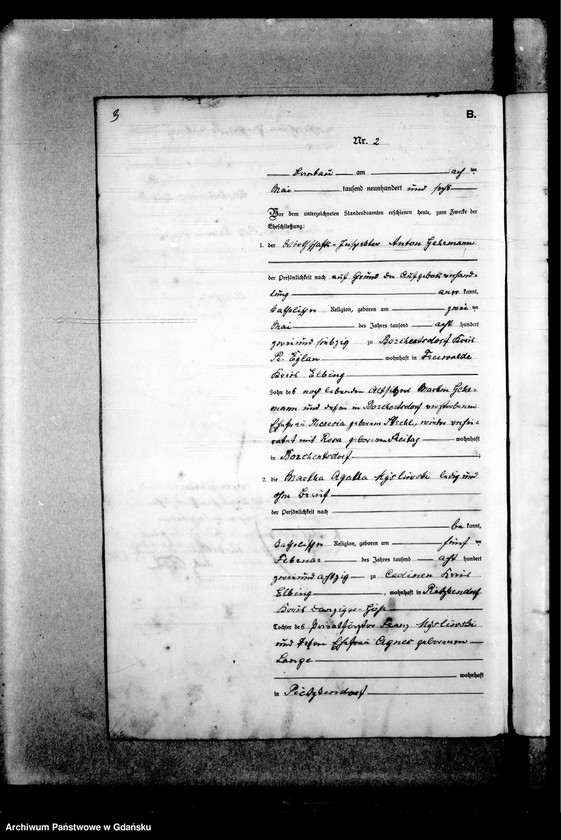 3
B.
Nr. 2
am acht
Mai tausend neunhundert und sechs
Vor dem unterzeichneten Standesbeamten erschienen heute, zum Zwecke der
Eheschließung:
1. der Wirthschafts-Inspektor Anton Gehrmann
der Persönlichkeit nach auf Grund der Aufgebotsverhand-
lung aner kannt,
katholischer Religion, geboren am zwei ten
Mai des Jahres tausend acht hundert
zweiundsiebzig zu Borchertsdorf Kreis
Pr. Eylau wohnhaft in Freiwalde
Kreis Elbing
Sohn des noch lebenden Altsitzers Martin Gehr-
mann und dessen in Borchertsdorf verstorbenen
Ehefrau Theresia geborenen wieder verhei-
rathet mit Rosa geborenen Freitag wohnhaft
in Borchertsdorf
2. die Martha Agatha Kyslinski ledig und
ohne Beruf
der Persönlichkeit nach
be kannt,
katholischer Religion, geboren am fünf ten
Februar des Jahres tausend acht hundert
zweiundachtzig zu Cadinen Kreis
Elbing, wohnhaft in Pietzkendorf
Kreis Danziger-Höhe
Tochter des Privatförsters Franz Kyslinski
und dessen Ehefrau Agnes geborenen
Lange
wohnhaft
in Pietzkendorf
Archiwum Państwowe w Gdańsku